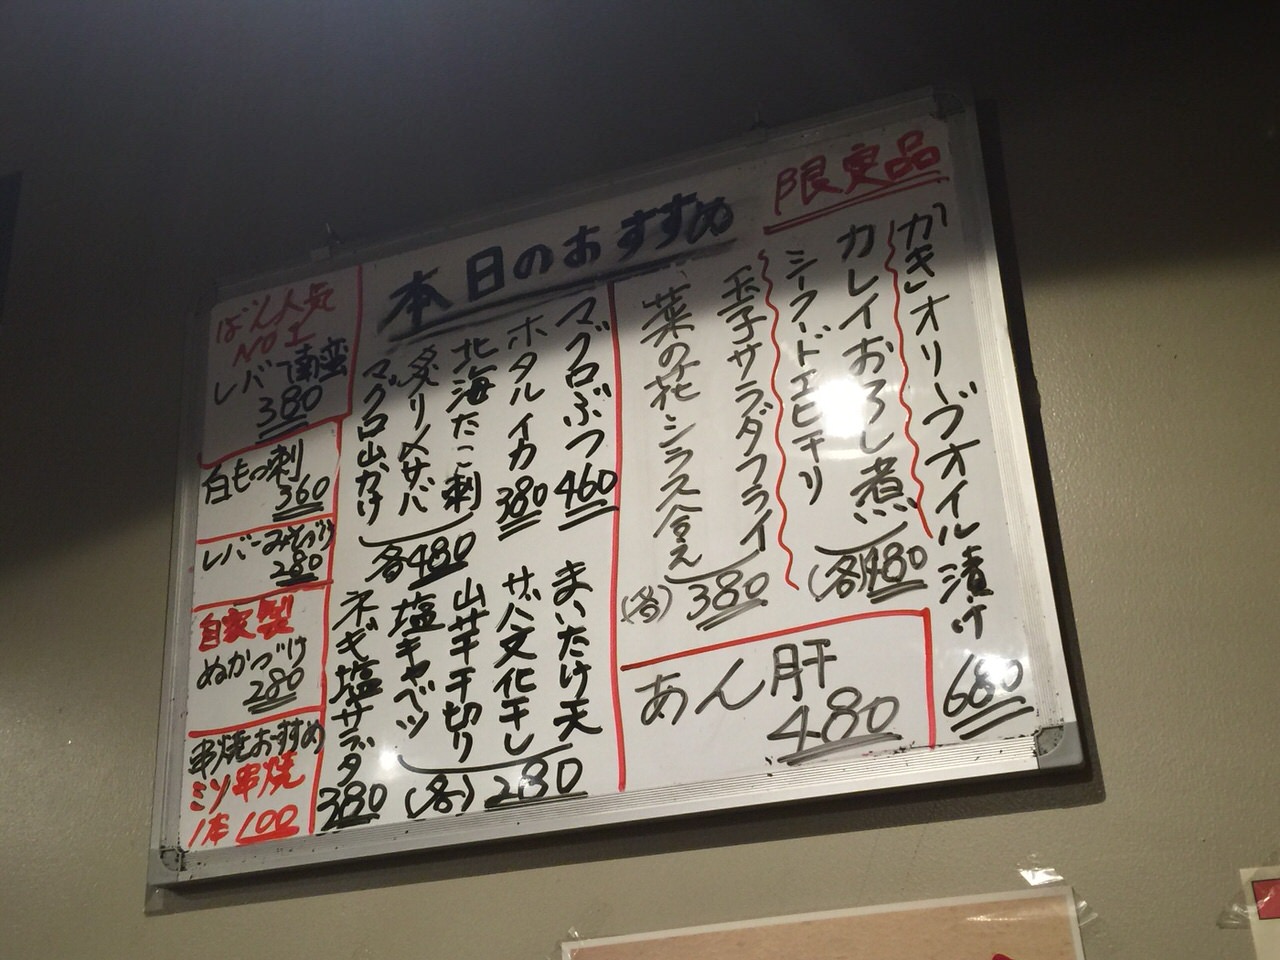 限定品
かきオリーブオイル漬け 680
カレイおろし煮
シーフードエビチリ
(各)480
玉子サラダフライ
菜の花シラス合え
(各)380
あん肝
480
本日のおすすめ
マグロぶつ 460
ホタルイカ 380
北海たこ刺
炙り〆サバ
マグロ山かけ
各480
まいたけ天
サバ文化干し
山芋千切り
塩キャベツ
(各)280
ネギ塩サラダ
380
ばん人気
No1
レバー南蛮
380
白もつ刺
360
レバーみそづけ
280
自家製
ぬかづけ
280
串焼おすすめ
ミソ串焼
1本100